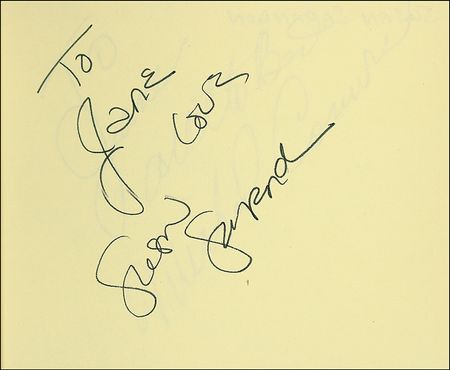 To
Jane
Love
Susan
Sarandon